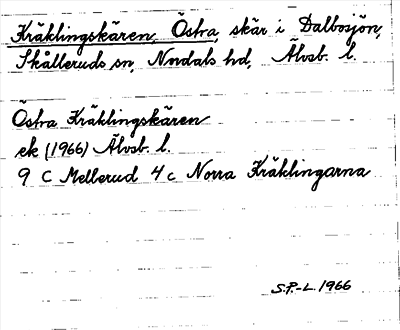 Kräklingskären, Östra, skär i Dalbosjön,
Skålleruds sn, Nordals hd, Älvsb. l.
Östra Kräklingskären
ek (1966) Älvsb. l.
9 C Mellerud 4 c Norra Kräklingarna
S.P.-L. 1966